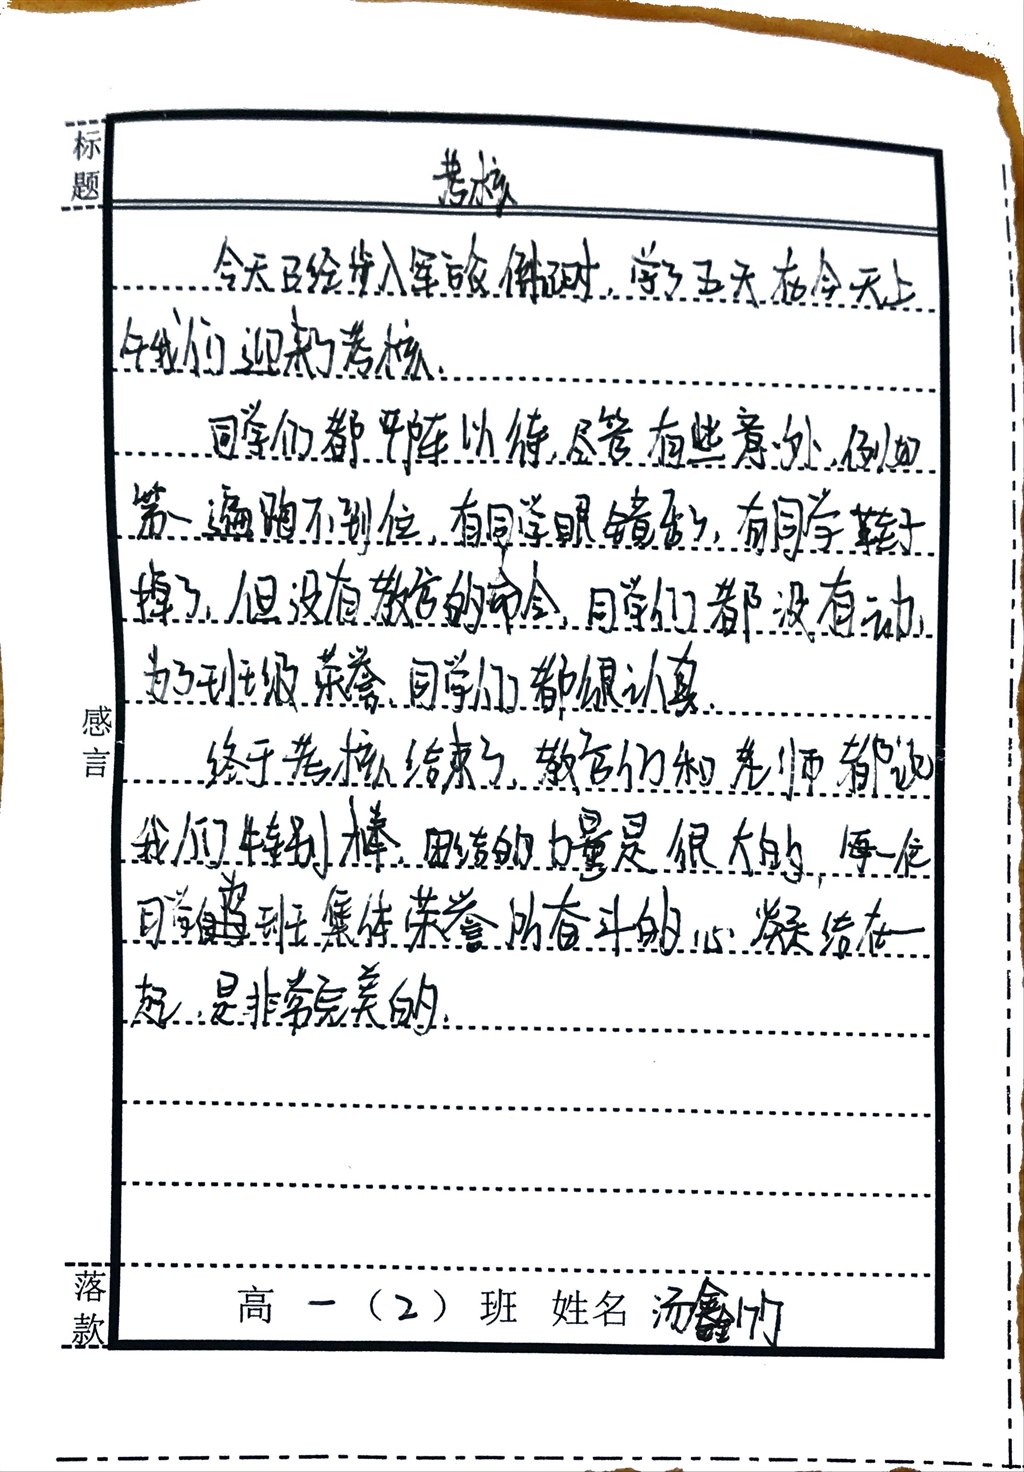 标题
考核
今天已经步入军校，学了五天在今天上
午我们迎来了考核.
同学们都严阵以待,尽管有些意外,例如
第一遍跑不到位,有同学眼镜丢了,有同学鞋子
掉了,但没有教官的命令,同学们都没有动,
为了班级荣誉、同学们都很认真.
终于考核结束了,教官们和老师都说
我们特别棒.团结的力量是很大的,每一位
同学 班集体荣誉所奋斗的心凝结在一
起,是非常完美的.
感言
落款
高一(2)班 姓名 汤鑫